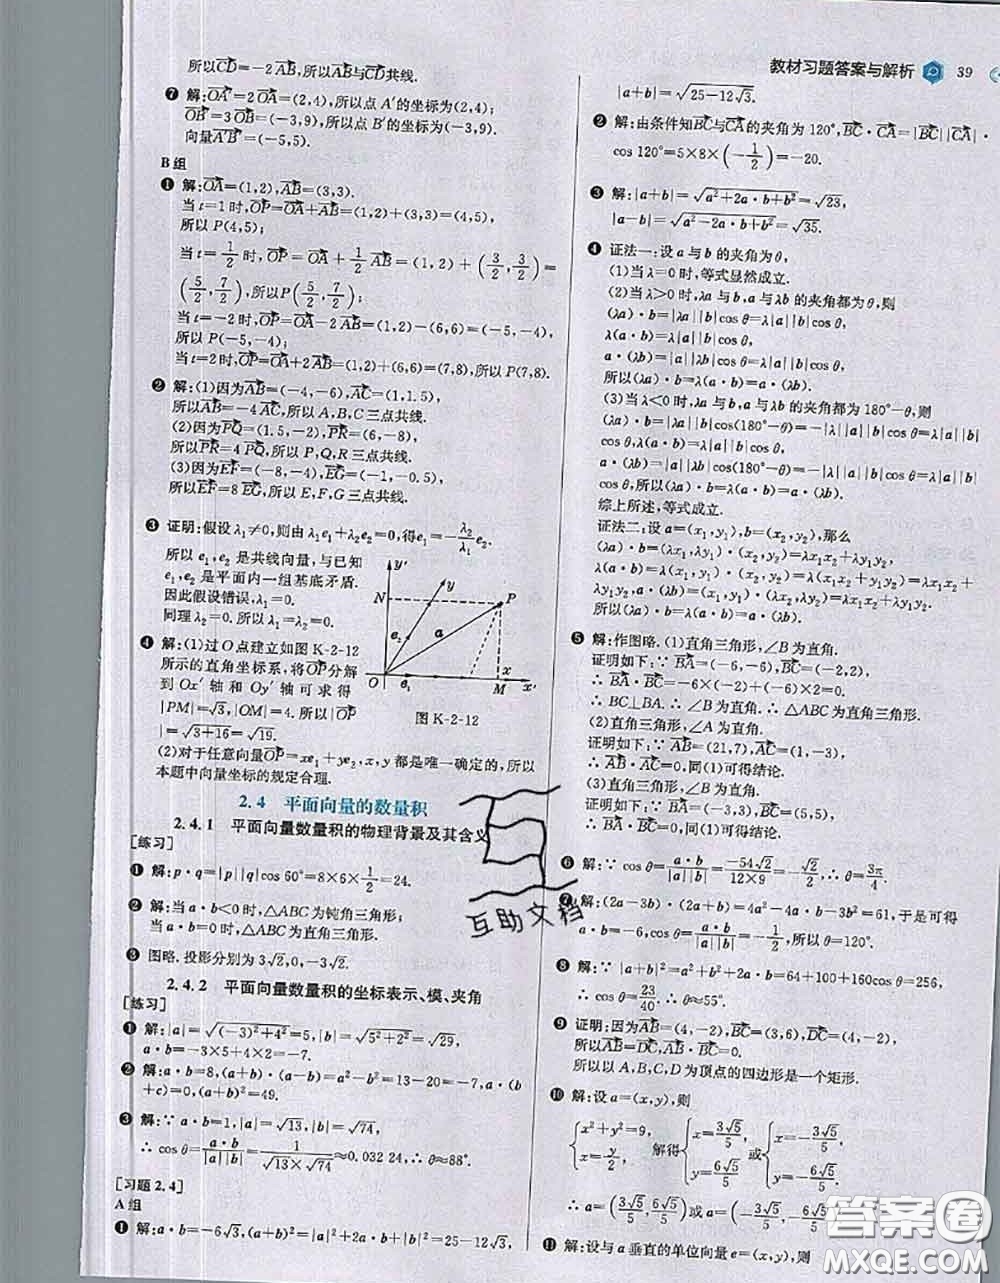 教材习题答案与解析 39
所以CD=-2AB,所以AB与CD共线.
❼ 解:OA'=2OA=(2,4),所以点 A'的坐标为(2,4);
OB'=3OB=(-3,9),所以点 B'的坐标为(-3,9).
向量A'B'=(-5,5).
B组
❶ 解:OA=(1,2),AB=(3,3).
当 t=1 时,OP=OA+AB=(1,2)+(3,3)=(4,5),
所以 P(4,5);
当 t=1/2 时,OP=OA+1/2 AB=(1,2)+(3/2,3/2)=
(5/2,7/2),所以P(5/2,7/2);
当 t=-2 时,OP=OA-2AB=(1,2)-(6,6)=(-5,-4),
所以P(-5,-4);
当 t=2 时,OP=OA+2AB=(1,2)+(6,6)=(7,8),所以P(7,8).
❷ 解:(1)因为AB=(-4,-6),AC=(1,1.5),
所以AB=-4AC,所以A,B,C三点共线.
(2)因为PQ=(1.5,-2),PR=(6,-8),
所以PR=4PQ,所以P,Q,R三点共线.
(3)因为EF=(-8,-4),EG=(-1,-0.5),
所以EF=8EG,所以E,F,G三点共线.
❸ 证明:假设 λ₁≠0,则由 λ₁e₁+λ₂e₂=0,得e₁=-λ₂/λ₁ e₂.
所以 e₁,e₂ 是共线向量,与已知
e₁,e₂ 是平面内一组基底矛盾.
因此假设错误,λ₁=0.
同理 λ₂=0.所以 λ₁=λ₂=0.
❹ 解:(1)过O点建立如图 K-2-12
所示的直角坐标系,将OP分解
到 Ox'轴和 Oy'轴可求得
|PM|=√3,|OM|=4.所以|OP|
=√(3+16)=√19.
y' y N P e₂ a O e₁ M x x'
图 K-2-12
(2)对于任意向量OP=xe₁+ye₂,x,y都是唯一确定的,所以
本题中向量坐标的规定合理.
2.4 平面向量的数量积
2.4.1 平面向量数量积的物理背景及其含义
[练习]
❶ 解:p·q=|p||q|cos 60°=8×6×1/2=24.
❷ 解:当 a·b<0时,△ABC为钝角三角形;
当 a·b=0时,△ABC为直角三角形.
❸ 图略.投影分别为3√2,0,-3√2.
2.4.2 平面向量数量积的坐标表示、模、夹角
[练习]
❶ 解:|a|=√((-3)²+4²)=5,|b|=√(5²+2²)=√29,
a·b=-3×5+4×2=-7.
❷ 解:a·b=8,(a+b)·(a-b)=a²-b²=13-20=-7,a·(b
+c)=0,(a+b)²=49.
❸ 解:∵a·b=1,|a|=√13,|b|=√74,
∴cosθ=a·b/|a||b|=1/(√13×√74)≈0.032 24,∴θ≈88°.
[习题2.4]
A组
❶ 解:a·b=-6√3,(a+b)²=a²+2a·b+b²=25-12√3,
|a+b|=√(25-12√3).
❷ 解:由条件知BC与CA的夹角为120°,BC·CA=|BC||CA|·
cos 120°=5×8×(-1/2)=-20.
❸ 解:|a+b|=√(a²+2a·b+b²)=√23,
|a-b|=√(a²-2a·b+b²)=√35.
❹ 证法一:设a与b的夹角为θ,
(1)当λ=0时,等式显然成立.
(2)当λ>0时,λa与b,a与λb的夹角都为θ,则
(λa)·b=|λa||b|cosθ=λ|a||b|cosθ,
λ(a·b)=λ|a||b|cosθ,
a·(λb)=|a||λb|cosθ=λ|a||b|cosθ,
所以(λa)·b=λ(a·b)=a·(λb).
(3)当λ<0时,λa与b,a与λb的夹角都为180°-θ,则
(λa)·b=|λa||b|cos(180°-θ)=-|λ||a||b|cosθ=λ|a||b|
cosθ,λ(a·b)=λ|a||b|cosθ,
a·(λb)=|a||λb|cos(180°-θ)=-|λ||a||b|cosθ=λ|a||b|
cosθ,所以(λa)·b=λ(a·b)=a·(λb).
综上所述,等式成立.
证法二:设a=(x₁,y₁),b=(x₂,y₂),那么
(λa)·b=(λx₁,λy₁)·(x₂,y₂)=λx₁x₂+λy₁y₂,
λ(a·b)=λ(x₁,y₁)·(x₂,y₂)=λ(x₁x₂+y₁y₂)=λx₁x₂+
λy₁y₂,a·(λb)=(x₁,y₁)·(λx₂,λy₂)=λx₁x₂+λy₁y₂.
所以(λa)·b=λ(a·b)=a·(λb).
❺ 解:作图略.(1)直角三角形,∠B为直角.
证明如下:∵BA=(-6,-6),BC=(-2,2),
∴BA·BC=-6×(-2)+(-6)×2=0.
∴BC⊥BA.∴∠B为直角.∴△ABC为直角三角形.
(2)直角三角形,∠A为直角.
证明如下:∵AB=(21,7),AC=(1,-3),
∴AB·AC=0,同(1)可得结论.
(3)直角三角形,∠B为直角.
证明如下:∵BA=(-3,3),BC=(5,5),
∴BA·BC=0,同(1)可得结论.
❻ 解:∵cosθ=a·b/|a||b|=-54√2/(12×9)=-√2/2,∴θ=3π/4.
❼ 解:(2a-3b)·(2a+b)=4a²-4a·b-3b²=61,于是可得
a·b=-6,∵cosθ=a·b/|a||b|=-1/2,所以θ=120°.
❽ 解:∵(2a-b)·(2a-b)=64+100+160cosθ=256,
∴cosθ=23/40.∴θ≈55°.
❾ 证明:因为AB=(4,-2),BC=(3,6),DC=(4,-2),
所以AB=DC,AB·BC=0.
所以以A,B,C,D为顶点的四边形是一个矩形.
❿ 解:设a=(x,y),则
{x²+y²=9, x=y/2, 解得{x=3√5/5, y=6√5/5 或{x=-3√5/5, y=-6√5/5.
∴a=(3√5/5,6√5/5)或a=(-3√5/5,-6√5/5).
⓫ 解:设与a垂直的单位向量e=(x,y),则
互助文档
答案圈
MXQE.COM